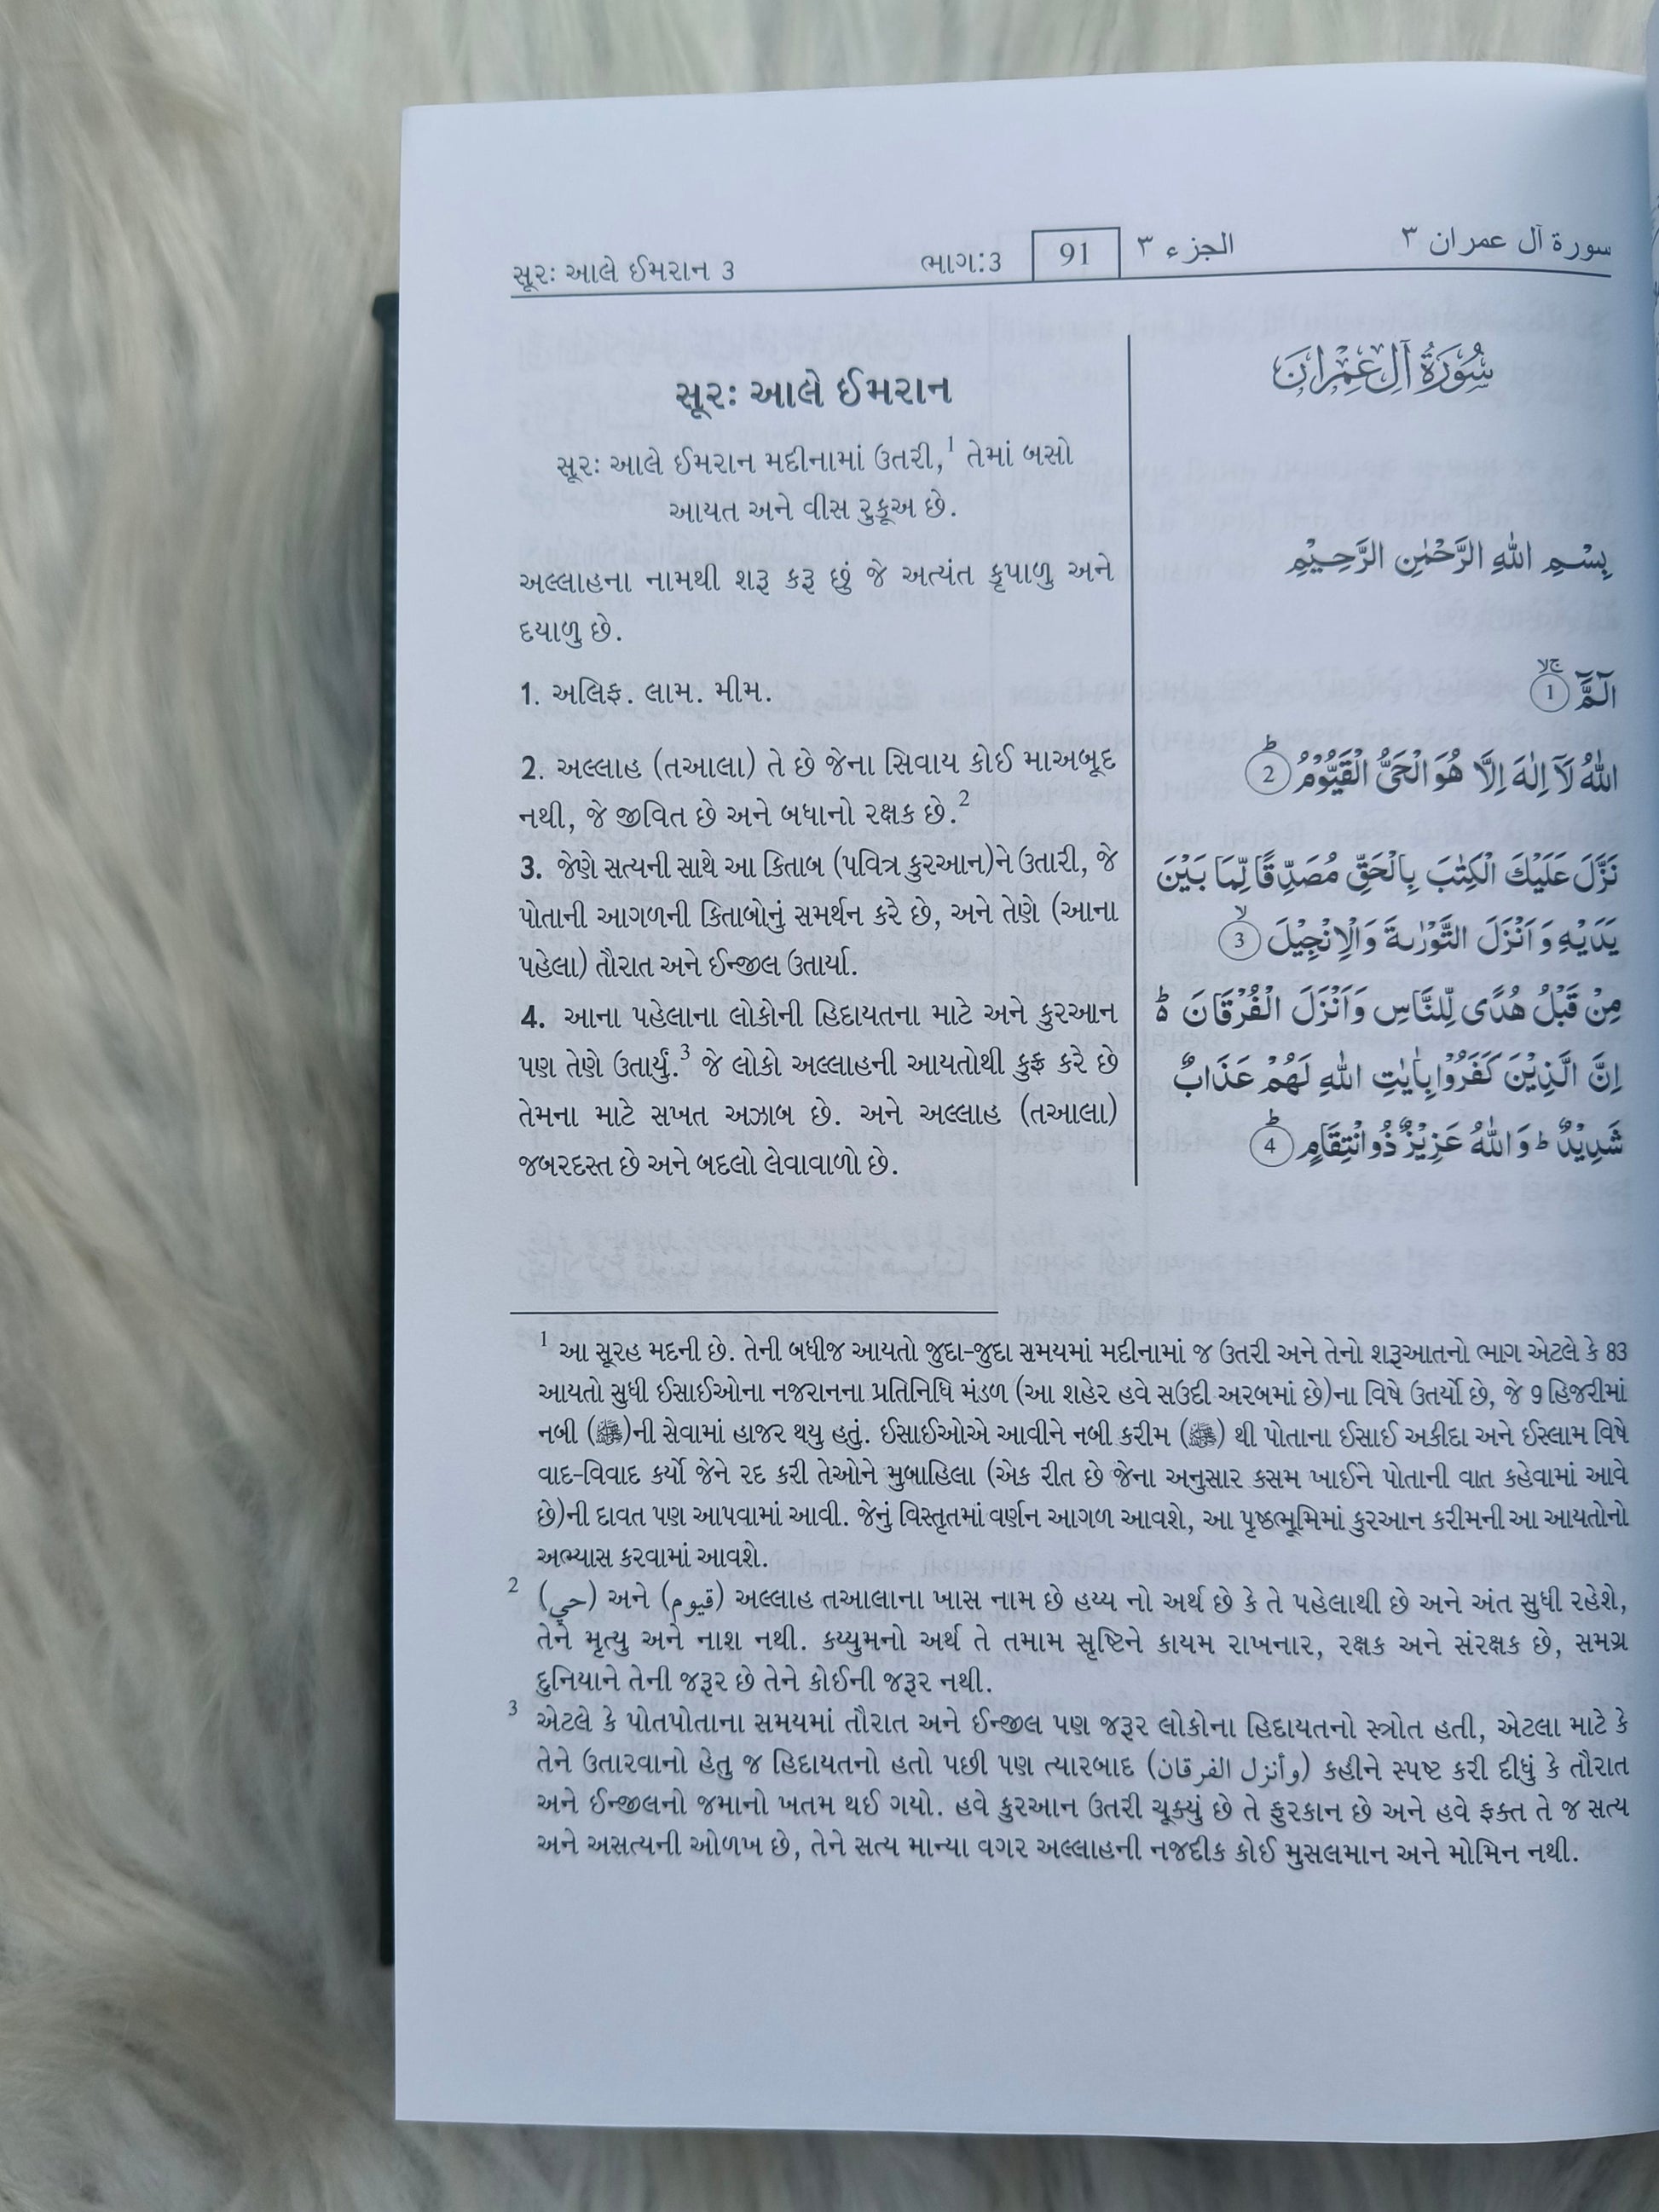 સૂરઃ આલે ઈમરાન 3 ભાગ:3 91 الجزء ٣ سورة آل عمران ٣
સૂરઃ આલે ઈમરાન
સૂરઃ આલે ઈમરાન મદીનામાં ઉતરી,1 તેમાં બસો
આયત અને વીસ રુકૂઅ છે.
અલ્લાહના નામથી શરૂ કરૂ છું જે અત્યંત કૃપાળુ અને
દયાળુ છે.
1. અલિફ. લામ. મીમ.
2. અલ્લાહ (તઆલા) તે છે જેના સિવાય કોઈ માઅબૂદ
નથી, જે જીવિત છે અને બધાનો રક્ષક છે.2
3. જેણે સત્યની સાથે આ કિતાબ (પવિત્ર કુરઆન)ને ઉતારી, જે
પોતાની આગળની કિતાબોનું સમર્થન કરે છે, અને તેણે (આના
પહેલા) તૌરાત અને ઈન્જીલ ઉતાર્યા.
4. આના પહેલાના લોકોની હિદાયતના માટે અને કુરઆન
પણ તેણે ઉતાર્યું.3 જે લોકો અલ્લાહની આયતોથી કુફ્ર કરે છે
તેમના માટે સખત અઝાબ છે. અને અલ્લાહ (તઆલા)
જબરદસ્ત છે અને બદલો લેવાવાળો છે.
سُوْرَةُ آلِ عِمْرَانَ
بِسْمِ اللّٰهِ الرَّحْمٰنِ الرَّحِيْمِ
الٓمَّٓ ۙۚ 1
اللّٰهُ لَآ اِلٰهَ اِلَّا هُوَ الْحَىُّ الْقَيُّوْمُ ؕ 2
نَزَّلَ عَلَيْكَ الْكِتٰبَ بِالْحَقِّ مُصَدِّقًا لِّمَا بَيْنَ
يَدَيْهِ وَاَنْزَلَ التَّوْرٰىةَ وَالْاِنْجِيْلَ ۙ 3
مِنْ قَبْلُ هُدًى لِّلنَّاسِ وَاَنْزَلَ الْفُرْقَانَ ؕ
اِنَّ الَّذِيْنَ كَفَرُوْا بِاٰيٰتِ اللّٰهِ لَهُمْ عَذَابٌ
شَدِيْدٌ ؕ وَاللّٰهُ عَزِيْزٌ ذُو انْتِقَامٍ ؕ 4
1 આ સૂરહ મદની છે. તેની બધીજ આયતો જુદા-જુદા સમયમાં મદીનામાં જ ઉતરી અને તેનો શરૂઆતનો ભાગ એટલે કે 83
આયતો સુધી ઈસાઈઓના નજરાનના પ્રતિનિધિ મંડળ (આ શહેર હવે સઉદી અરબમાં છે)ના વિષે ઉતર્યો છે, જે 9 હિજરીમાં
નબી (ﷺ)ની સેવામાં હાજર થયુ હતું. ઈસાઈઓએ આવીને નબી કરીમ (ﷺ) થી પોતાના ઈસાઈ અકીદા અને ઈસ્લામ વિષે
વાદ-વિવાદ કર્યો જેને રદ કરી તેઓને મુબાહિલા (એક રીત છે જેના અનુસાર કસમ ખાઈને પોતાની વાત કહેવામાં આવે
છે)ની દાવત પણ આપવામાં આવી. જેનું વિસ્તૃતમાં વર્ણન આગળ આવશે, આ પૃષ્ઠભૂમિમાં કુરઆન કરીમની આ આયતોનો
અભ્યાસ કરવામાં આવશે.
2 (حي) અને (قيوم) અલ્લાહ તઆલાના ખાસ નામ છે હય્ય નો અર્થ છે કે તે પહેલાથી છે અને અંત સુધી રહેશે,
તેને મૃત્યુ અને નાશ નથી. કય્યુમનો અર્થ તે તમામ સૃષ્ટિને કાયમ રાખનાર, રક્ષક અને સંરક્ષક છે, સમગ્ર
દુનિયાને તેની જરૂર છે તેને કોઈની જરૂર નથી.
3 એટલે કે પોતપોતાના સમયમાં તૌરાત અને ઈન્જીલ પણ જરૂર લોકોના હિદાયતનો સ્ત્રોત હતી, એટલા માટે કે
તેને ઉતારવાનો હેતુ જ હિદાયતનો હતો પછી પણ ત્યારબાદ (وأنزل الفرقان) કહીને સ્પષ્ટ કરી દીધું કે તૌરાત
અને ઈન્જીલનો જમાનો ખતમ થઈ ગયો. હવે કુરઆન ઉતરી ચૂક્યું છે તે ફુરકાન છે અને હવે ફક્ત તે જ સત્ય
અને અસત્યની ઓળખ છે, તેને સત્ય માન્યા વગર અલ્લાહની નજદીક કોઈ મુસલમાન અને મોમિન નથી.